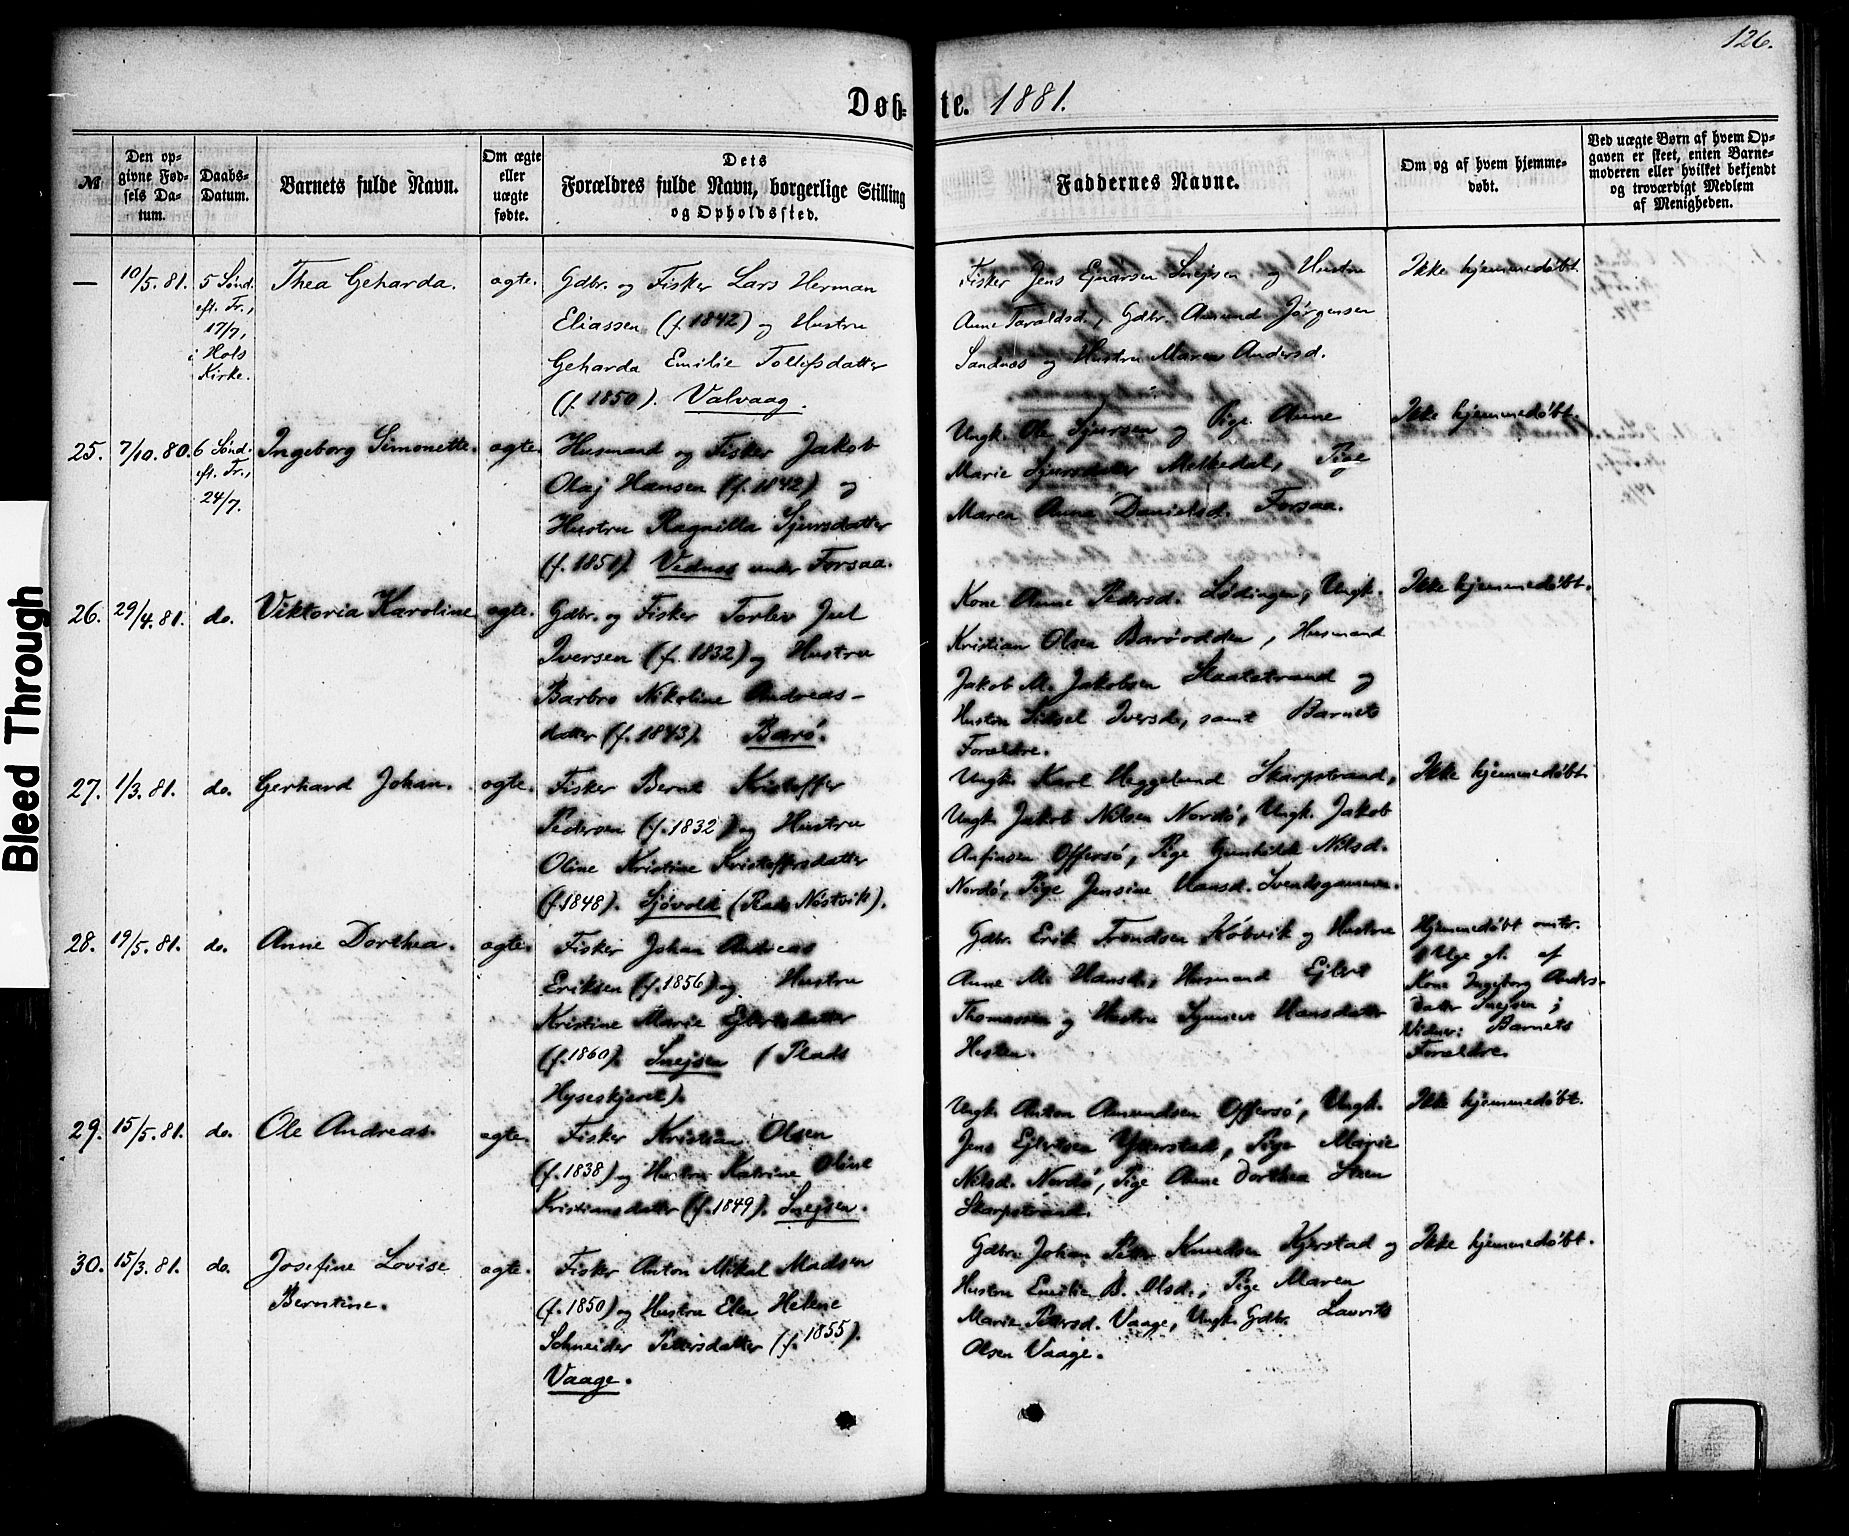 126.
Døb-
te. 1881.
№
Den op-
givne Fød-
sels Da-
tum.
Daabs-
Datum.
Barnets fulde Navn.
Om ægte
eller
uægte
fødte.
Dets
Forældres fulde Navn, borgerlige Stilling
og Opholdssted.
Faddernes Navne.
Om og af hvem hjemme-
døbt.
Ved uægte Børn af hvem Op-
gaven er skeet, enten Barne-
moderen eller hvilket bekjendt
og troværdigt Medlem
af Menigheden.
—
10/5.81.
5 Sønd.
eft. Tr.,
17/7,
i Hols
Kirke.
Thea Geharda.
ægte.
Gdbr. og Fisker Lars Herman
Eliassen (f. 1842) og Hustru
Geharda Emilie Tollefsdatter
(f. 1850). Valvaag.
Fisker Jens Ejnarsen Snejsen og Hustru
Anne Taraldsd., Gdbr. Amund Jørgensen
Sandnæs og Hustru Maren Andersd.
Ikke hjemmedøbt.
25.
7/10.80.
6 Sønd.
eft. Tr.,
24/7.
Ingeborg Simonette.
ægte.
Husmand og Fisker Jakob
Olaj Hansen (f. 1842) og
Hustru Ragnilla Sjursdatter
(f. 1851). Vednes under Forsaa.
Ungk. Ole Sjursen og Pige Anne
Marie Sjursdatter Melkedal, Pige
Maren Anne Danielsd. Forsaa.
Ikke hjemmedøbt.
26.
29/4.81.
do.
Viktoria Karoline
ægte.
Gdbr. og Fisker Torlev Juel
Iversen (f. 1832) og Hustru
Barbro Nikoline Andreas-
datter (f. 1843). Barø.
Kone Anne Pedersd. Lødingen, Ungk.
Kristian Olsen Barøodden, Husmand
Jakob M. Jakobsen Staalstrand og
Hustru Sidsel Iversd., samt Barnets
Forældre.
Ikke hjemmedøbt.
27.
1/3.81.
do.
Gerhard Johan.
ægte.
Fisker Bernt Kristoffer
Pedersen (f. 1832) og Hustru
Oline Kristine Kristoffersdatter
(f. 1848). Sjøvold (Plads Nøstvik).
Ungk. Karl Heggelund Skarpstrand,
Ungk. Jakob Nilsen Nordø, Ungk. Jakob
Anfinsen Offersø, Pige Gunhilde Nilsd.
Nordø, Pige Jensine Hansd. Svendsgammen.
Ikke hjemmedøbt.
28.
19/5.81.
do.
Anne Dorthea.
ægte.
Fisker Johan Andreas
Eriksen (f. 1856) og Hustru
Kristine Marie Ejlertsdatter
(f. 1860). Snejsen (Plads
Hyseskjæret).
Gdbr. Erik Trondsen Kobvik og Hustru
Anne M. Hansd., Husmand Ejlert
Thomassen og Hustru Synneve Hansdatter
Hesten.
Hjemmedøbt omtr.
1 Uge gl. af
Kone Ingeborg Anders-
datter Snejsen;
Vidner: Barnets
Forældre.
29.
15/5.81.
do.
Ole Andreas.
ægte.
Fisker Kristian Olsen
(f. 1838) og Hustru Katrine Oline
Kristiansdatter (f. 1849). Snejsen.
Ungk. Anton Amundsen Offersø, Ungk.
Jens Ejlertsen Ytterstad, Pige Marie
Nilsd. Nordø, Pige Anne Dorthea Steen
Skarpstrand.
Ikke hjemmedøbt.
30.
15/3.81.
do.
Josefine Lovise
Berntine.
ægte.
Fisker Anton Mikal Madsen
(f. 1850) og Hustru Elen Helene
Schneider Petersdatter (f. 1855).
Vaage.
Gdbr. Johan Petter Knudsen Kjerstad og
Hustru Emilie B. Olsd., Pige Maren
Marie Petersd. Vaage, Ungk. Gdbr. Laurits
Olsen Vaage.
Ikke hjemmedøbt.
Bleed Through